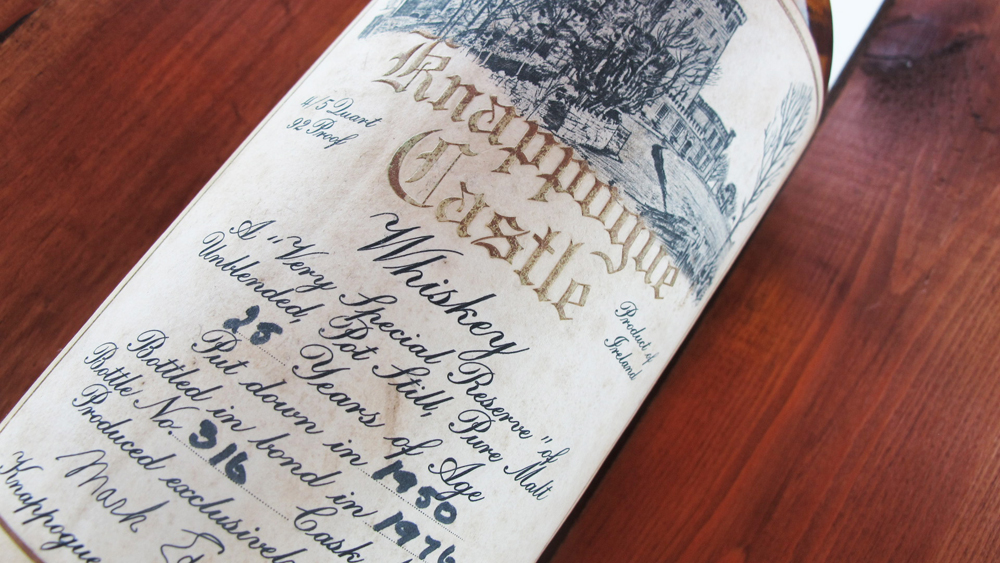 Knappogue
Castle
4/5 Quart
92 Proof
Product of
Ireland
Whiskey
A "Very Special Reserve" of
Unblended, Pot Still, Pure Malt
25 Years of Age
Put down in 1950
Bottled in bond in 1976
Bottle No. 316 Cask
Produced exclusively
Mark
Knappogue